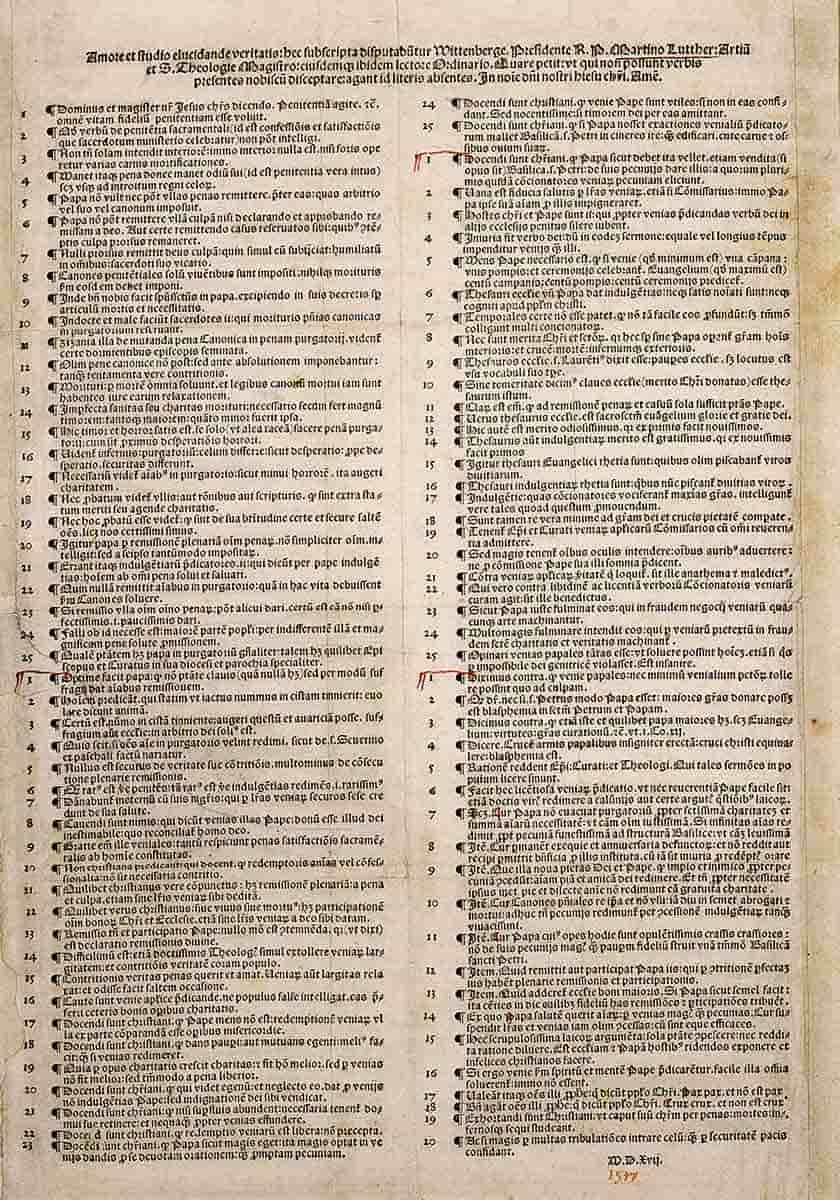 Amore et studio elucidande veritatis: hec subscripta disputabũtur Wittenberge. Presidente R. P. Martino Lutther: Artiũ
et S. Theologie Magistro: eiusdemq̃ ibidem lectore Ordinario. Quare petit: vt qui non possunt verbis
presentes nobiscũ disceptare: agant id literis absentes. In noĩe dñi nostri hiesu chr̃i. Amẽ.
1 ¶ Dominus et magister nr̃ Jesus chr̃s dicendo. Penitentiã agite. ⁊c̃.
omnẽ vitam fideliũ penitentiam esse voluit.
2 ¶ Qđ verbũ de penitẽtia sacramentali (id est confessiõis et satisfactiõis
que sacerdotum ministerio celebratur) non põt intelligi.
3 ¶ Non tñ solam intendit interiorẽ: immo interior nulla est. nisi foris ope
retur varias carnis mortificationes.
4 ¶ Manet itaq̃ pena donec manet odiũ sui (id est penitentia vera intus)
scꝫ vsq̃ ad introitum regni celoꝝ.
5 ¶ Papa nõ vult nec põt vllas penas remittere. p̃ter eas: quas arbitrio
vel suo vel canonum imposuit.
6 ¶ Papa nõ põt remittere vllã culpã nisi declarando et approbando re-
missam a deo. Aut certe remittendo casus reservatos sibi: quibꝰ ↄ̃tẽ-
ptis culpa prorsus remaneret.
7 ¶ Nulli prorsus remittit deus culpã: quin simul eũ subijciat: humiliatũ
in oĩbus: sacerdoti suo vicario.
8 ¶ Canones penitẽtiales solũ viuẽtibus sunt impositi: nihilq̃ morituris
ꝑm eosd em debet imponi.
9 ¶ Inde bñ nobis facit spũssctũs in papa. excipiendo in suis decretis sp̃
articulũ mortis et necessitatis.
10 ¶ Indocte et male faciũt sacerdotes ii: qui morituris pñias canonicas
in purgatorium reservant.
11 ¶ Zizania illa de mutanda pena Canonica in penam purgatorij. videnẽ
certe dormientibus episcopis seminata.
12 ¶ Olim pene canonice nõ post: sed ante absolutionem imponebantur:
tanq̃ tentamenta vere contritionis.
13 ¶ Morituri: ꝑ mortẽ omnia soluunt. et legibus canonũ mortui iam sunt
habentes iure earum relaxationem.
14 ¶ Imperfecta sanitas seu charitas morituri: necessario secum fert magnũ
timorem: tantoq̃ maiorẽ: quãto minor fuerit ipsa.
15 ¶ Hic timor: et horror: satis est. se solo (vt alia taceã) facere penã purga-
torii: cum sit ꝓximus desperatiõis horrori.
16 ¶ Videnẽ infernus: purgatoriũ: celum differre: sicut desperatio: ꝓpe de-
speratio. securitas differunt.
17 ¶ Necessariũ videtur aĩabꝰ in purgatorio: sicut minui horrorẽ. ita augeri
charitatem.
18 ¶ Nec ꝓbatum videtur vllis: aut rõnibus aut scripturis. q̃ sint extra sta-
tum meriti seu agende charitatis.
19 ¶ Nec hoc ꝓbatũ esse videtur: q̃ sint de sua btĩtudine certe et secure saltẽ
oẽs. licꝫ nos certissimi simus.
20 ¶ Igitur papa ꝑ remissionẽ plenariã oĩm penaꝝ. nõ simpliciter oĩm. in-
telligit: sed a seipso tantũmodo impositaꝝ.
21 ¶ Errant itaq̃ indulgẽtiarũ p̃dicatores. ii: qui dicũt per pape indulgẽ
tias: hoĩem ab oĩni pena solui et saluari.
22 ¶ Quin nullã remittit aĩabus in purgatorio: quã in hac vita debuissent
ꝑm Canones soluere.
23 ¶ Si remissio vlla oĩm oĩno penaꝝ: põt alicui dari. certũ est eã nõ nisi ꝑ-
fectissimis .i. paucissimis dari.
24 ¶ Falli ob id necesse est: maiorẽ partẽ popl̃i: per indifferentẽ illã et ma-
gnificam pene solute ꝓmissionem.
25 ¶ Qualẽ ptãtem hꝫ papa in purgatoriũ gñaliter: talem hꝫ quilibet Epi
scopus et Curatus in sua diocesi et parochia specialiter.
1 ¶ Optime facit papa: q̃ nõ ptãte clauis (quã nullã hꝫ) sed per modũ suf
fragij dat aĩabus remissionem.
2 ¶ Hoĩem predicãt. qui statim vt iactus nummus in cistam tinnierit: euo
lare dicunt animã.
3 ¶ Certũ est. nũmo in cistã tinniente: augeri questũ et auariciã posse. suf-
fragium aũt ecclesie: in arbitrio dei soliꝰ est.
4 ¶ Quis scit. si oẽs aĩe in purgatorio velint redimi. sicut de .s. Severino
et paschali factũ narratur.
5 ¶ Nullus est securus de veritate sue cõtritiõis. multominus de cõsecu-
tione plenarie remissionis.
6 ¶ Qj rarꝰ est ṽe penitẽs: tã rarꝰ est ṽe indulgẽtias redimẽs .i. rarissimꝰ
7 ¶ Dãnabunẽ ineternũ cũ suis mgr̃is: qui ꝑ lr̃as veniaꝝ securos sese cre
dunt de sua salute.
8 ¶ Cauendi sunt nimis: qui dicũt venias illas Pape: donũ esse illud dei
inestimabile: quo reconciliatur homo deo.
9 ¶ Gratie em̃ ille veniales: tantũ respiciunt penas satisfactiõis sacramẽ-
ralis ab homine constitutas.
10 ¶ Non christiana predicant: qui docent. q̃ redemptoris aĩas vel cõfes-
sionalia: nõ sit necessaria contritio.
11 ¶ Quilibet christianus vere cõpunctus: hꝫ remissionẽ plenariã: a pena
et culpa. etiam sine lr̃is veniaꝝ sibi debitã.
12 ¶ Quilibet verus christianus: siue viuus siue mortuꝰ: hꝫ participationẽ
oĩm bonoꝝ Chr̃i et Ecclesie. etiã sine lr̃is veniaꝝ a deo sibi datam.
13 ¶ Remissio tñ et participatio Pape: nullo mõ est ↄ̃temnẽda. q̃ (vt dixi)
est declaratio remissionis diuine.
14 ¶ Difficilimũ est: etiã doctissimis Theologꝭ simul extollere veniaꝝ lar-
gitatem: et contritiõis veritatẽ coram populo.
15 ¶ Contritionis veritas penas querit et amat. Veniaꝝ aũt largitas rela
xat: et odisse facit saltem occasione.
16 ¶ Caute sunt venie ap̃lice p̃dicande. ne populus false intelligat. eas p̃-
ferri ceteris bonis opibus charitatis.
17 ¶ Docendi sunt christiani. q̃ Pape mens nõ est: redemptionẽ veniaꝝ vl
la ex parte cõparandã esse opibus misericordie.
18 ¶ Docendi sunt christiani. q̃ dans pauperi: aut mutuans egenti: meliꝰ fa-
cit: q̃ si venias redimeret.
19 ¶ Quia ꝑ opus charitatis crescit charitas: ⁊ fit hõ melior. sed ꝑ venias
nõ fit melior: sed tm̃modo a pena liberior.
20 ¶ Docendi sunt chr̃iani. q̃ qui videt egenũ: et neglecto eo. dat ꝓ venijs
nõ indulgẽtias Pape: sed indignationem dei sibi vendicat.
21 ¶ Docendi sunt chr̃iani. q̃ nisi suꝑfluis abundent: necessaria tenenẽ do-
mui sue retinere: et nequaq̃ ꝓpter venias effundere.
22 ¶ Docendi sunt christiani. q̃ redemptio veniarũ est libera: nõ p̃cepta.
23 ¶ Docẽdi sunt chr̃iani. q̃ Papa sicut magis eget: ita magis optat in ve
nijs dandis ꝓ se deuotam orationem: q̃ ꝓmptam pecuniam.
24 ¶ Docendi sunt christiani. q̃ venie Pape sunt vtiles: si non in eas confi-
dant. Sed nocentissime: si timorem dei per eas amittant.
25 ¶ Docendi sunt chr̃iani. q̃ si Papa nosset exactiones venialiũ p̃dicato-
rum mallet Basilicã .s. Petri in cineres ire: q̃ edificari. cute carne ⁊ os-
sibus ovium suaꝝ.
1 ¶ Docendi sunt chr̃iani. q̃ Papa sicut debet ita vellet. etiam vendita (si
opus sit) Basilica .s. Petri: de suis pecunijs dare illis: a quorum pluri-
mis quidã cõcionatores veniaꝝ pecuniam eliciunt.
2 ¶ Vana est fiducia salutis ꝑ lr̃as veniaꝝ. etiã si Cõmissarius: immo Pa-
pa ipse suã aĩam ꝓ illis impigneraret.
3 ¶ Hostes chr̃i et Pape sunt ii: qui ꝓpter venias p̃dicandas verbũ dei in
alijs ecclesijs penitus silere iubent.
4 ¶ Iniuria fit verbo dei: dũ in eodẽ sermone: equale vel longius tẽpus
impenditur venijs q̃ illi.
5 ¶ Mens Pape necessario est. q̃ si venie (qđ minimum est) vna cãpana:
vnis pompis: et ceremonijs celebrantur. Euangelium (qđ maximũ est)
centũ campanis: centũ pompis: centũ ceremonijs predicetur.
6 ¶ Thesauri ecclesie vñ Papa dat indulgẽtias: neq̃ satis notati sunt: neq̃
cogniti apud ppl̃m christi.
7 ¶ Temporales certe nõ esse patet. q̃ nõ tã facile eos ꝓfundũt: sꝫ tm̃mõ
colligunt multi concionatoꝝ.
8 ¶ Nec sunt merita Chr̃i et sctõꝝ. q̃ hec sp̃ sine Papa operantur gr̃am hoĩs
interioris: et crucẽ: mortẽ: infernumq̃ exterioris.
9 ¶ Thesauros ecclesie. s. Laurẽtiꝰ dixit esse: pauꝑes ecclesie. sꝫ locutus est
vsu vocabuli suo tp̃e.
10 ¶ Sine temeritate dicimꝰ claues ecclesie (merito Chr̃i donatas) esse the-
saurum istum.
11 ¶ Claꝝ est em̃. q̃ ad remissionẽ penaꝝ et casuũ sola sufficit ptãs Pape.
12 ¶ Verus thesaurus ecclesie. est sacrosctm̃ euãgelium glorie et gratie dei.
13 ¶ Hic autẽ est merito odiosissimus. qꝛ ex primis facit nouissimos.
14 ¶ Thesaurus aũt indulgentiaꝝ merito est gratissimus. qꝛ ex nouissimis
facit primos
15 ¶ Igitur thesauri Euangelici rhetia sunt: quibus olim piscabanẽ viros
diuitiarum.
16 ¶ Thesauri indulgentiaꝝ rhetia sunt: qbus nũc piscanẽ diuitias viroꝝ.
17 ¶ Indulgẽtie: quas cõcionatores vociferantur maxias gr̃as. intelligunẽ
vere tales quoad questum ꝓmouendum.
18 ¶ Sunt tamen re vera minime ad gr̃am dei et crucis pietatẽ compate.
19 ¶ Tenentur Ep̃i et Curati veniaꝝ ap̃licarũ Cõmissarios cũ oĩmi reueren-
tia admittere.
20 ¶ Sed magis tenentur oĩbus oculis intendere: oĩbus auribꝰ aduertere:
ne ꝓ cõmissione Pape sua illi somnia p̃dicent.
21 ¶ Cõtra veniaꝝ ap̃licaꝝ ṽitatẽ q̃ loquitur. sit ille anathema ⁊ maledictꝰ.
22 ¶ Qui vero contra libidinẽ ac licentiã verborũ Cõcionatoris veniarũ
curam agit: sit ille benedictus.
23 ¶ Sicut Papa iuste fulminat eos: qui in fraudem negocij veniarũ quã-
cunq̃ arte machinantur.
24 ¶ Multomagis fulminare intendit eos: qui ꝑ veniarũ pretextũ in frau-
dem sctẽ charitatis et veritatis machinantur.
25 ¶ Opinari venias papales tãtas esse: vt soluere possint hoĩes. etiã si qs
ꝑ impossibile dei genitricẽ violasset. Est insanire.
1 ¶ Diximus contra. q̃ venie papales: nec minimũ venialium pctõꝝ tolle
re possint quo ad culpam.
2 ¶ Qđ dicitur. nec si .s. Petrus modo Papa esset: maiores gr̃as donare possꝫ
est blasphemia in sctm̃ Petrum et Papam.
3 ¶ Dicimus contra. q̃ etiã iste et quilibet papa maiores hꝫ. scꝫ Euange-
lium: virtutes: gr̃as curationũ. ⁊c̃. vt .1. Co. xij.
4 ¶ Dicere. Crucẽ armis papalibus insigniter erectã: cruci christi equiva-
lere: blasphemia est.
5 ¶ Rationẽ reddent Ep̃i: Curati: et Theologi. Qui tales sermões in po
pulum licere sinunt.
6 ¶ Facit hec licẽtiosa veniaꝝ p̃dicatio. vt nec reuerentiã Pape facile sit:
etiã doctis virꝭ redimere a calũnijs aut certe argutꝭ q̃stiõibꝰ laicoꝝ.
7 ¶ Scꝫ. Cur Papa nõ euacuat purgatoriũ ꝓpter sctissimã charitatẽ ⁊ sum
mã aĩarũ necessitatẽ: vt cãm oĩm iustissimã. Si infinitas aĩas re-
dimit ꝓpter pecuniã funestissimã ad structurã Basilice: vt cãm levissimã
8 ¶ Itẽ. Cur ꝑmanẽt exequie et anniuersaria defunctoꝝ: et nõ reddit aut
recipi ꝑmittit bñficia ꝓ illis instituta. cũ iã sit iniuria ꝓ redẽptꝭ orare
9 ¶ Itẽ. Que illa noua pietas Dei et Pape. q̃ impio et inimico ꝓpter pe-
cuniã ꝯcedũt: aĩam piã et amicã dei redimere. Et tñ ꝓpter necessitatẽ
ipsius met pie et dilecte aĩe nõ redimunt eã gratuita charitate.
10 ¶ Itẽ. Cur Canones pñiales re ip̃a et nõ vsu: iã diu in semet abrogati ⁊
mortui: adhuc tñ pecunijs redimuntur ꝑ ꝯcessionẽ indulgẽtiaꝝ tanq̃
viuacissimi.
11 ¶ Itẽ. Cur Papa cuiꝰ opes hodie sunt opulẽtissimis crassis crassiores:
nõ de suis pecunijs magꝭ q̃ pauꝑum fideliũ struit vnã tm̃mõ Basilicã
sancti Petri.
12 ¶ Item. Quid remittit aut participat Papa iis: qui ꝑ ↄ̃tritionẽ ꝑfectaꝫ
ius habẽt plenarie remissionis et participationis.
13 ¶ Item. Quid adderetur ecclesie boni maioris. Si Papa sicut semel facit:
ita cẽties in die cuilibꝫ fideliũ has remissiões ⁊ ꝑticipatiões tribuẽt.
14 ¶ Ex quo Papa salutẽ querit aĩaꝝ ꝑ venias magꝭ q̃ pecunias. Cur su-
spendit lr̃as et venias iam olim ꝯcessas: cũ sint eque efficaces.
15 ¶ Hec scrupulosissima laicoꝝ argumẽta: sola ptãte ꝯpescere: nec reddi-
ta ratione diluere. Est ecclesiam ⁊ Papã hostibꝰ ridendos exponere et
infelices christianos facere.
16 ¶ Si ergo venie ꝑm spiritũ et mentẽ Pape p̃dicarentur. facile illa omnia
soluerentur: immo nõ essent.
17 ¶ Valeãt itaq̃ oẽs illi ꝓphe: q̃ dicũt ppl̃o Chr̃i. Pax pax. et nõ est pax.
18 ¶ Bñ agãt oẽs illi ꝓphe: q̃ dicũt ppl̃o Chr̃i. Crux crux. et non est crux
19 ¶ Exhortandi sunt Christiani: vt caput suũ chr̃m per penas: mortes: in-
fernosq̃ sequi studeant.
20 ¶ Ac si magis ꝑ multas tribulatiões intrare celũ: q̃ ꝑ securitatẽ pacis
confidant.
M.D.Xvij.
1517